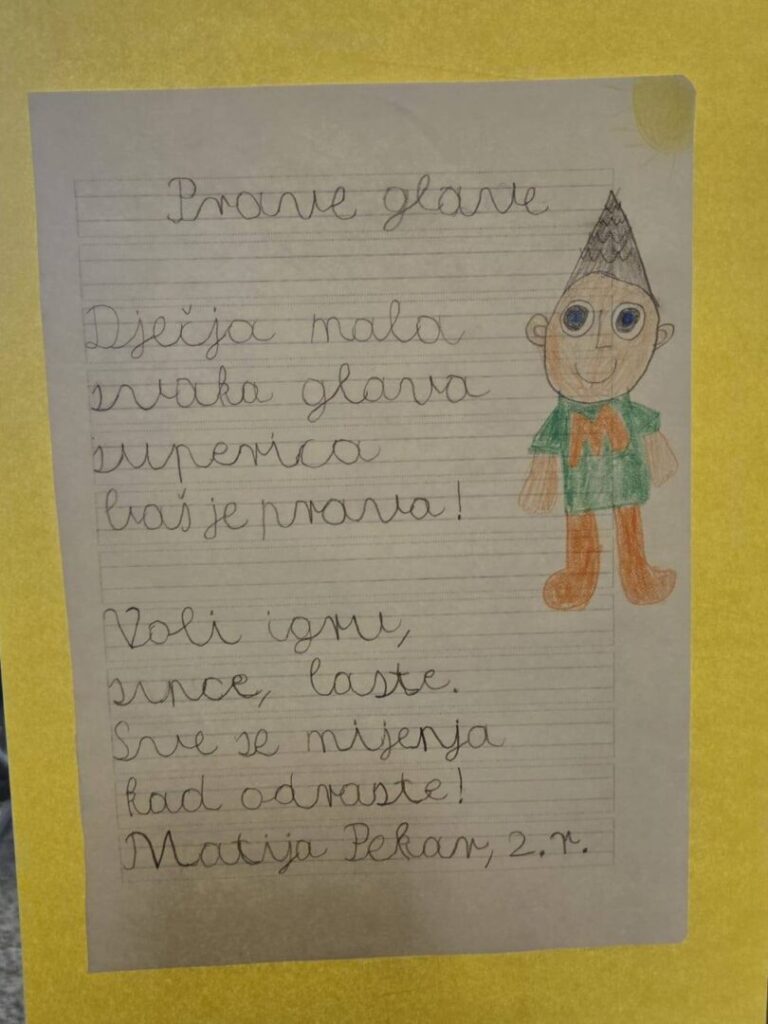 Prave glave
Dječja mala
svaka glava
superica
baš je prava!
Voli igru,
sunce, laste.
Sve se mijenja
kad odraste!
Matija Pekar, 2.r.
M